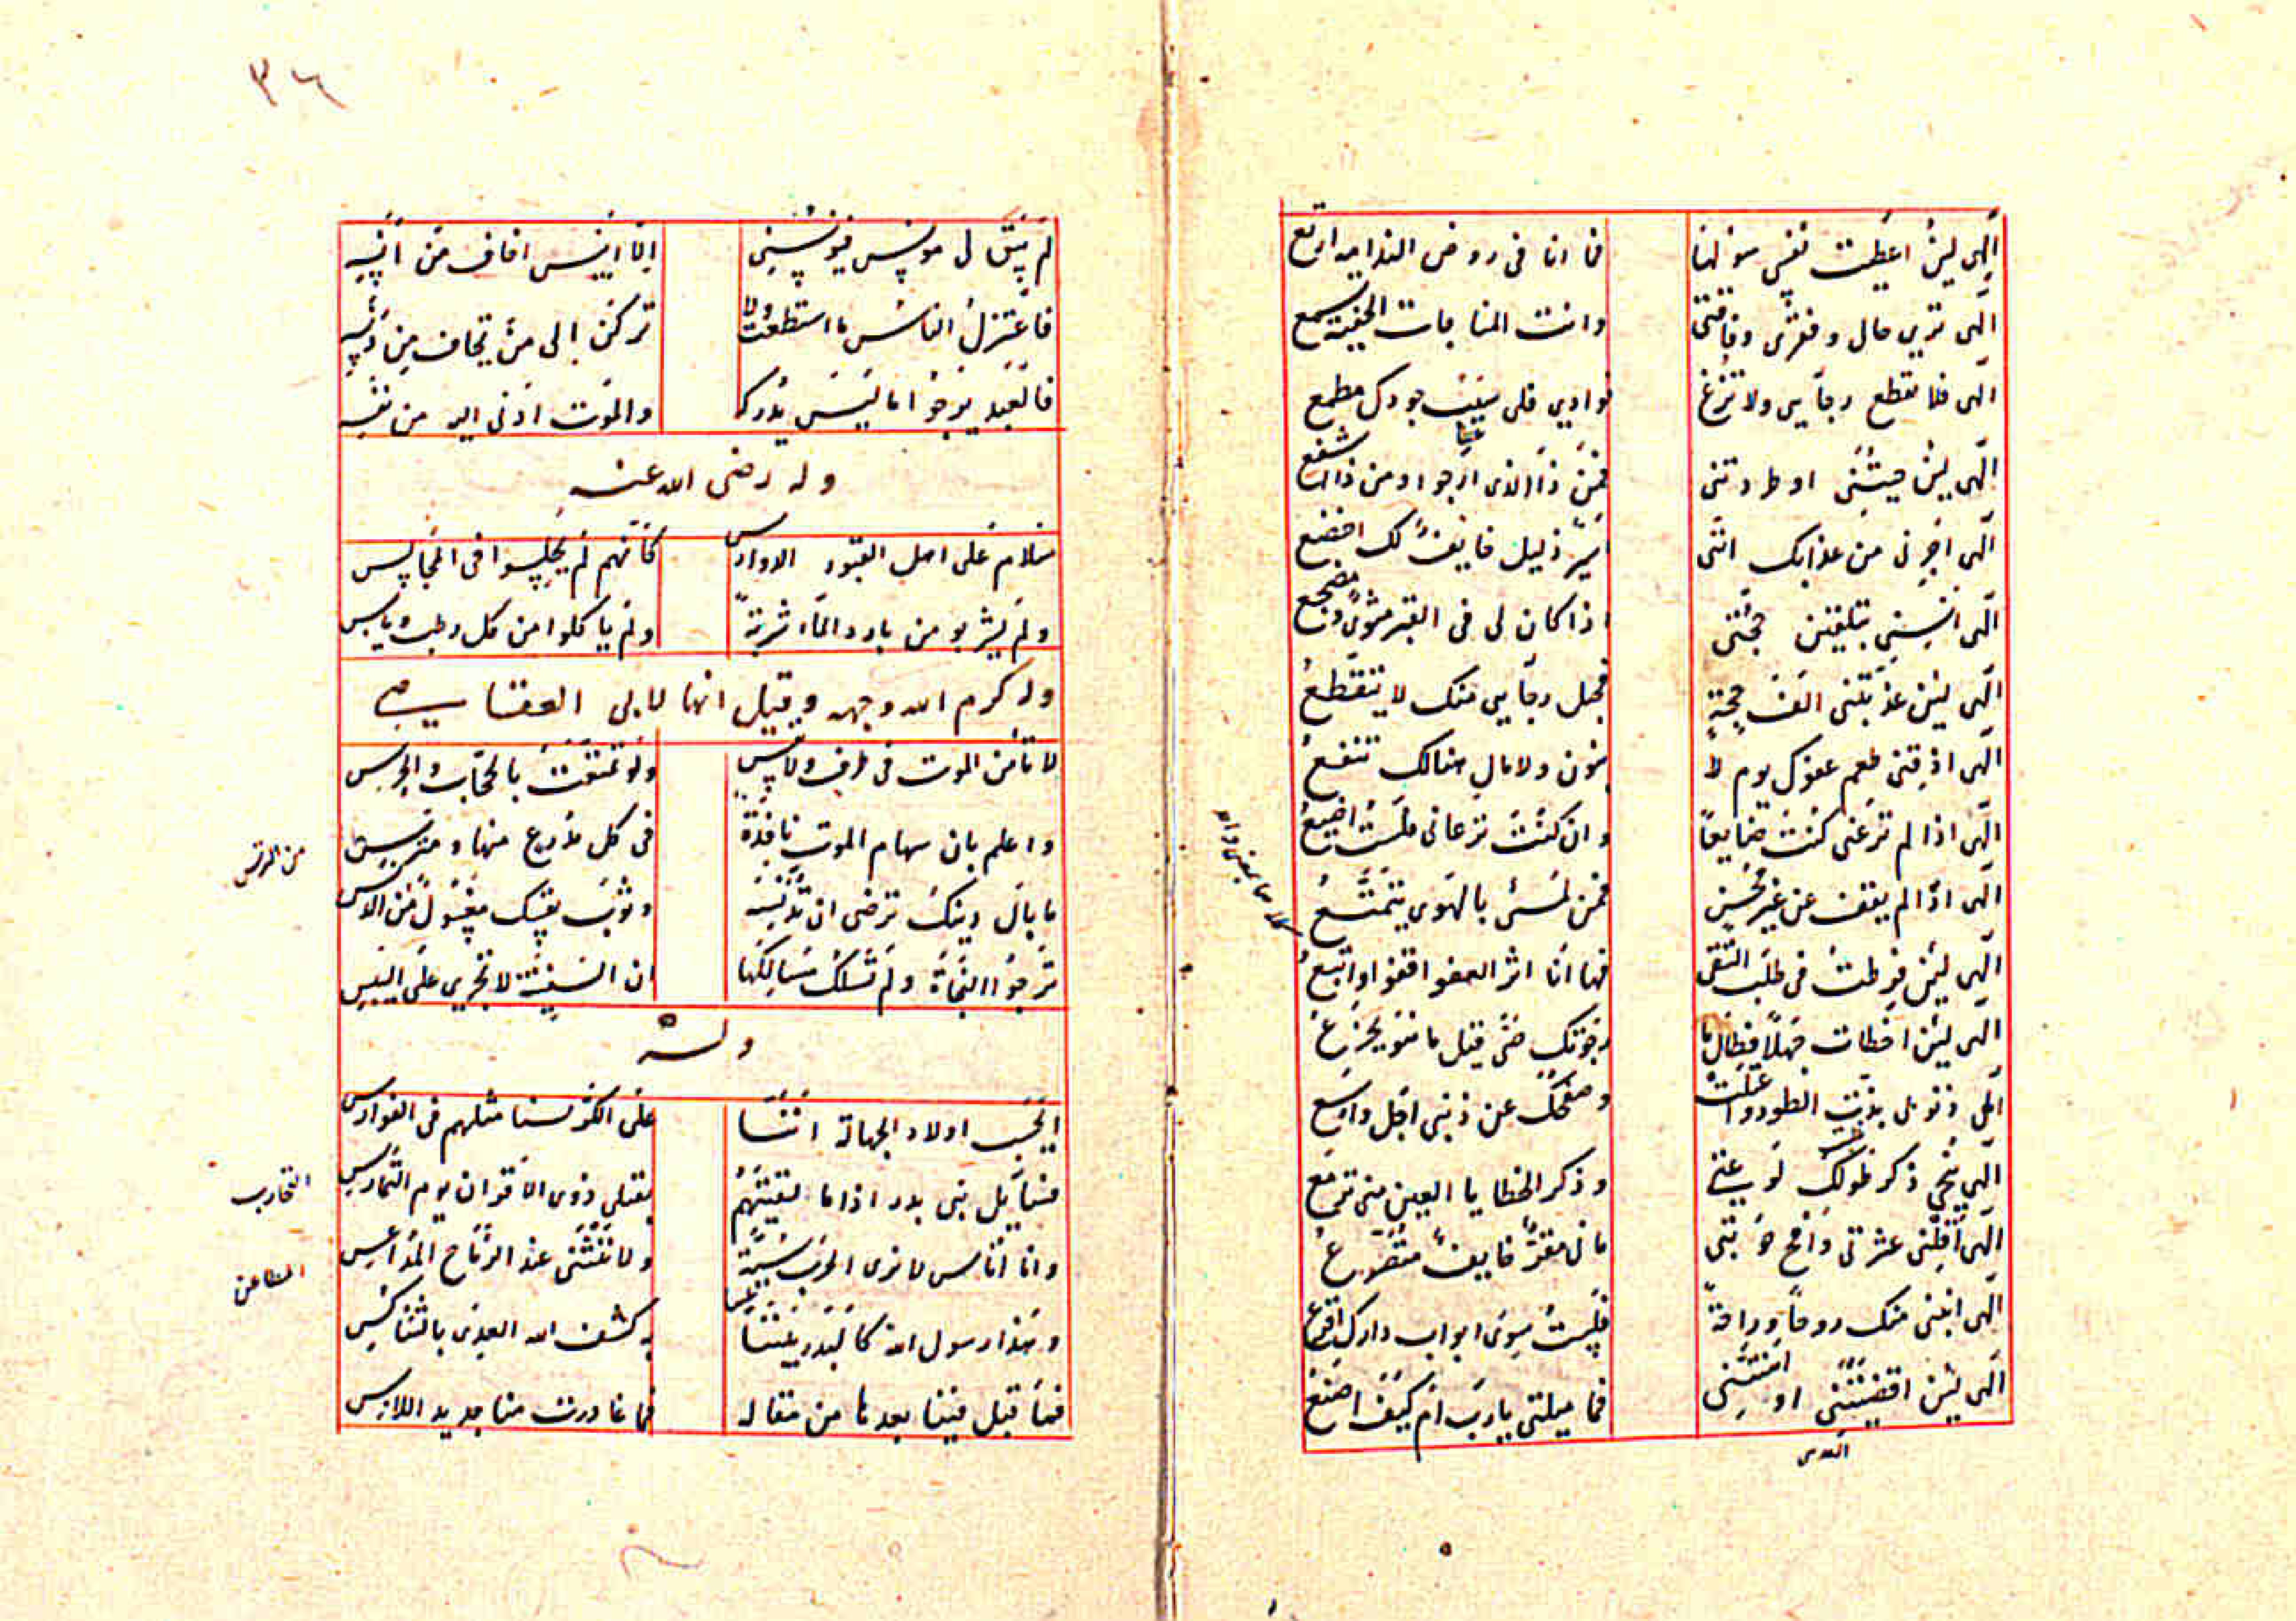 الهى لين اعطيت نفسى سولها
فها انا فى روض الندامه ارتع
الهى ترى حالى وفقرى وفاقتى
وانت المناجات الخفية تسمع
الهى فلا تقطع رجايى ولا تزغ
فوادي فلى في سيب جودك مطمع
الهى لين خيبتنى او طردتنى
فمن ذا الذى ارجوا ومن ذا اشفع
الهى اجرنى من عذابك اننى
اسير ذليل خايف لك اخضع
الهى انسنى بتلقين حجتى
اذا كان لى فى القبر مثوى ومضجع
الهى لين عذبتنى الف حجة
فحبل رجايى منك لا يتقطع
الهى اذقنى طعم عفوك يوم لا
بنون ولا مال هنالك تنفع
الهى اذا لم ترعنى كنت ضايعا
وان كنت ترعانى فلست اضيع
الهى اذا لم يعف عن غير محسن
فمن لمسئ بالهوى يتمتع
الهى لين فرطت فى طلب التقى
فها انا اثر العفو اقفوا واتبع
الهى لين اخطات جهلا فطال ما
رجوتك حتى قيل ما هو يجزع
الهى ذنوبى بذت الطود واعتلت
وصفحك عن ذنبى اجل واوسع
الهى ينحى ذكر طولك لوعتى
وذكر الخطايا العين منى تدمع
الهى اقلنى عثرتى وامح حوبتى
فانى مقر خايف متضرع
الهى انلنى منك روحا ورافة
فلست سوى ابواب دارك اقرع
الهى لين اقصيتنى او اهنتنى
فما حيلتى يارب ام كيف اصنع
٣٦
لم يبق لى مونس فيونسنى
الا انيس اخاف من انسه
فاعتزل الناس ما استطعت ولا
تركن الى من تخاف من دنسه
فالعبد يرجوا ما ليس يدركه
والموت ادنى اليه من نفسه
وله رضى الله عنه
سلام على اهل القبور الدوارس
كانهم لم يجلسوا فى المجالس
ولم يشربو من بارد الماء شربة
ولم ياكلوا من كل رطب ويابس
وله كرم الله وجهه وقيل انها لابى العتاهية
لا تامن الموت فى طرف ولا نفس
ولو تمنعت بالحجاب والحرس
واعلم بان سهام الموت نافذة
فى كل مدرع منها ومترس
من الترس
ما بال دينك ترضى ان تدنسه
وثوب نفسك مغسول من الدنس
ترجوا النجاة ولم تسلك مسالكها
ان السفينة لا تجرى على اليبس
وله
ايحسب اولاد الجهالة اننا
على الخيل لسنا مثلهم فى الفوارس
فسايل بنى بدر اذا ما لقيتهم
بقتلى ذوى الاقران يوم التمارس
التحارب
وانا اناس لا نرى الحرب سبة
ولا ننثنى عند الرماح المداعس
المطاعن
وهذا رسول الله كالبدر بيننا
به كشف الله العدى بالتناكس
فما قيل فينا بعدها من مقالة
فما غادرت منا جديد اللابس